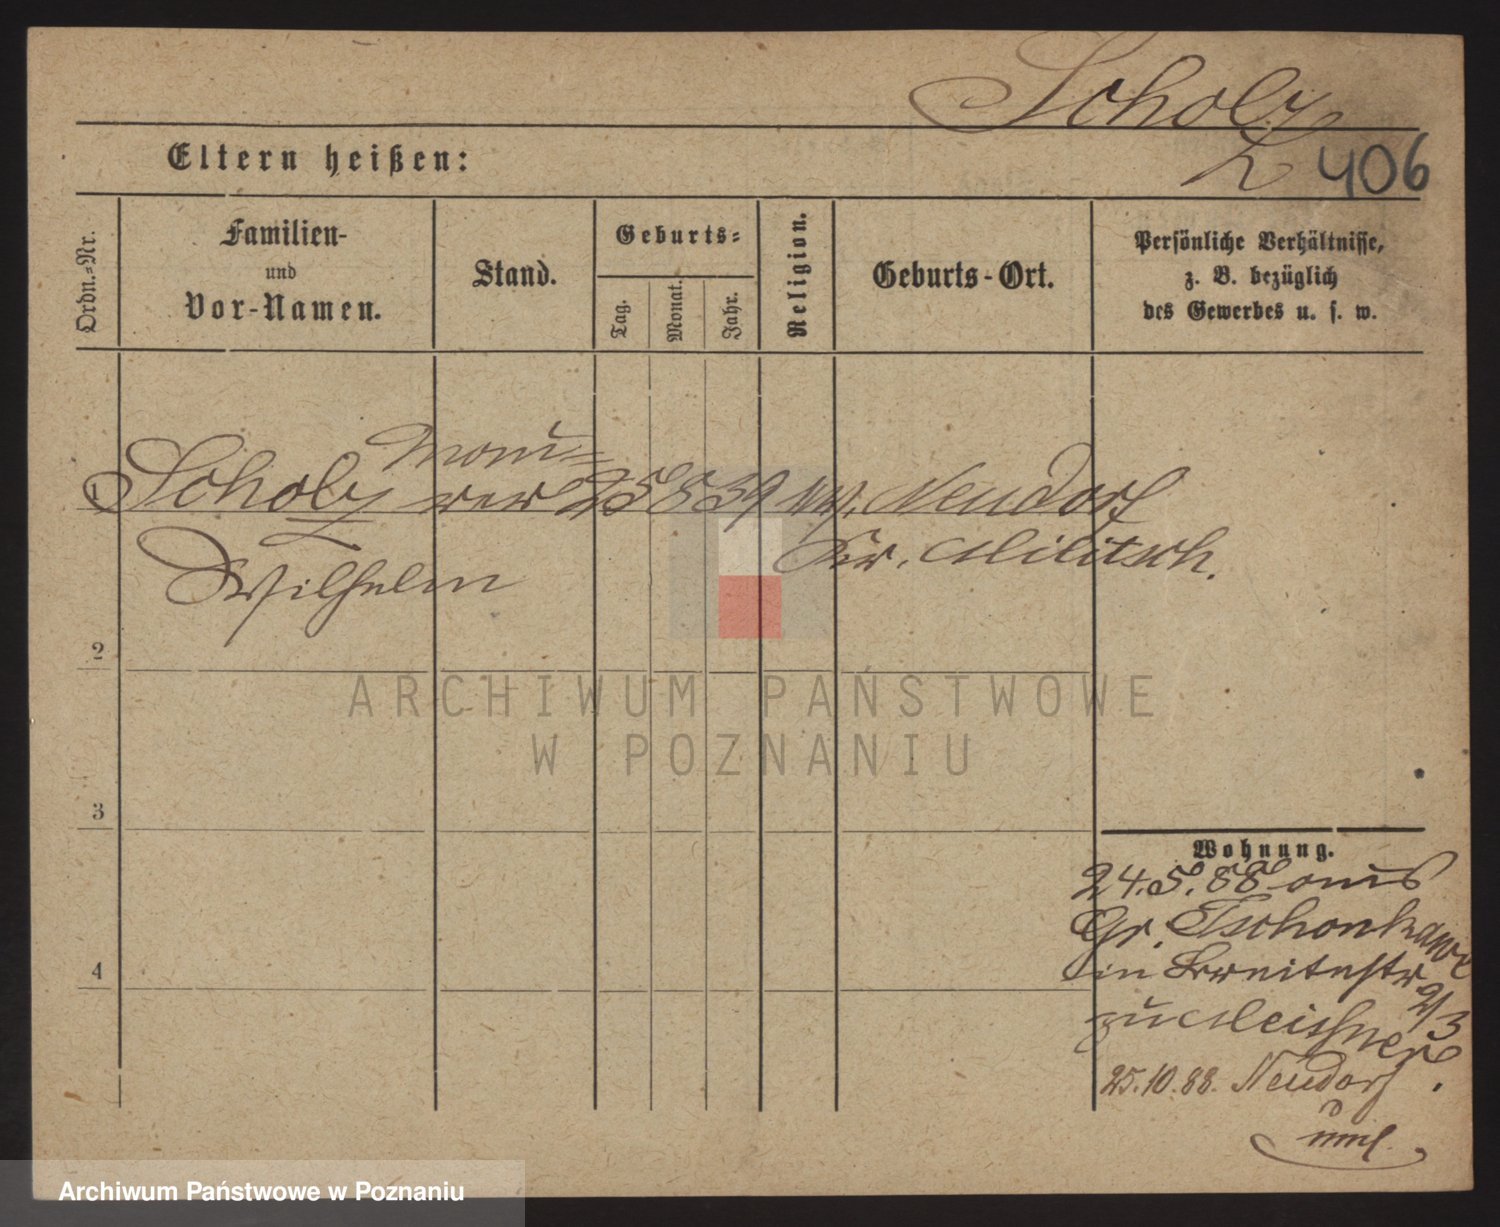 Scholz
406
Eltern heißen:
Ordn.=Nr.
Familien-
und
Vor-Namen.
Stand.
Geburts=
Tag.
Monat.
Jahr.
Religion.
Geburts-Ort.
Persönliche Verhältnisse,
z. B. bezüglich
des Gewerbes u. s. w.
1
Scholz
Wilhelm
Mau=
rer
25 8 59
Neudorf
Kr. Militsch.
2
3
4
Wohnung.
24.5.88 aus
Gr. Tschonkawe
in Breitestr
2/3
zu Meissner
25.10.88. Neudorf
ARCHIWUM PAŃSTWOWE
W POZNANIU
Archiwum Państwowe w Poznaniu